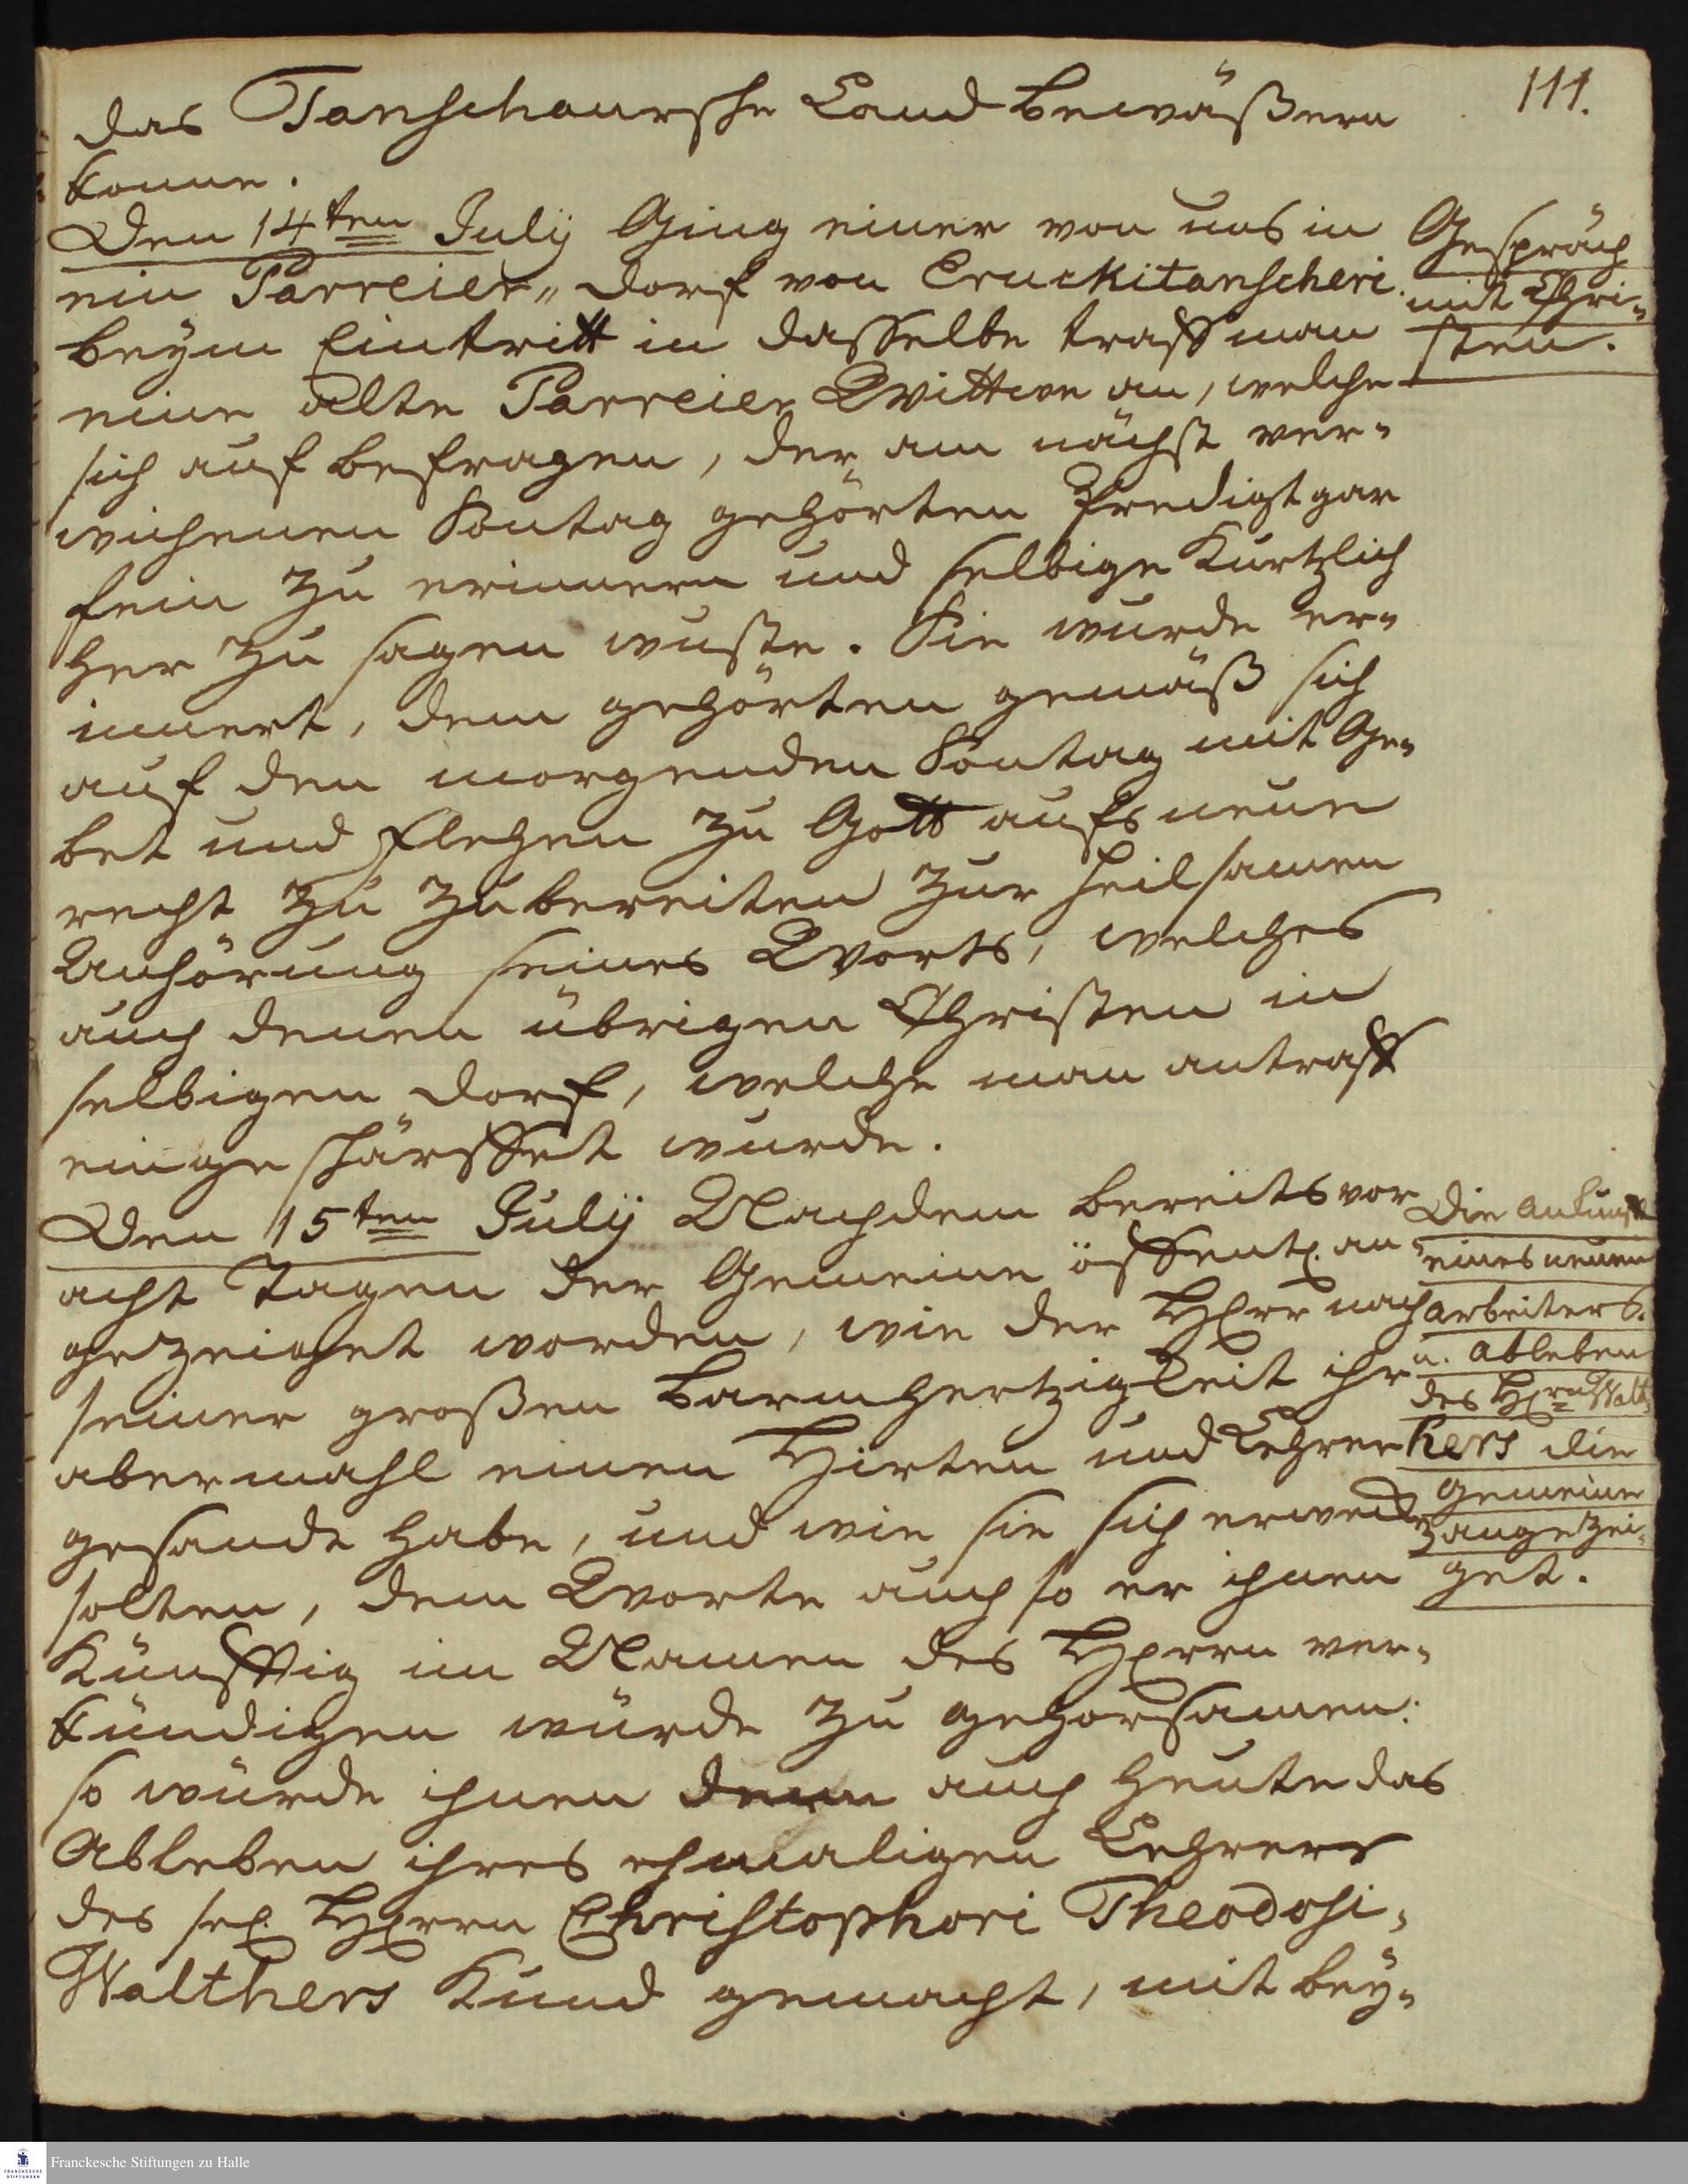 111.
das Tanschaursche Land bewäßern
konne.
Den 14ten July Ging einer von uns in
ein Parreier„ dorf von Cruckitanscheri.
beym Eintritt in dasselbe traff man
eine alte Parreier Wittwe an, welche
sich auf befragen, der am nächst ver-
wichenen Sontag gehörten Predigt gar
fein zu erinnern und selbige kurtzlich
her zu sagen wuste. Sie wurde er-
innert, dem gehörten gemäß sich
auf den morgenden Sontag mit Ge-
bet und Flehen zu Gott aufs neue
recht zu zubereiten zur heilsamen
Anhörung seines Worts, welches
auch denen übrigen Christen in
selbigen dorf, welche man antraff
eingeschärffet wurde.
Gespräch
mit Chri-
sten.
Den 15ten July Nachdem bereits vor
acht Tagen der Gemeine öffentl. an-
gezeiget worden, wie der HErr nach
seiner großen Barmhertzigkeit ihr
abermahl einen Hirten und Lehrer
gesandt habe, und wie sie sich
solten, dem Worte auch so er ihnen
künfftig im Namen des HErrn ver-
kündigen würde zu gehorsamen:
so würde ihnen denn auch heute das
Ableben ihres ehmaligen Lehrers
des sel. HErrn Christophori Theodosi,
Walthers kund gemacht, mit bey-
Die ankunft
eines neuen
arbeiters.
u. ableben
des HErrn Walt
hers die
Gemeine
angezei-
get.
Franckesche Stiftungen zu Halle
FRANCKESCHE
STIFTUNGEN